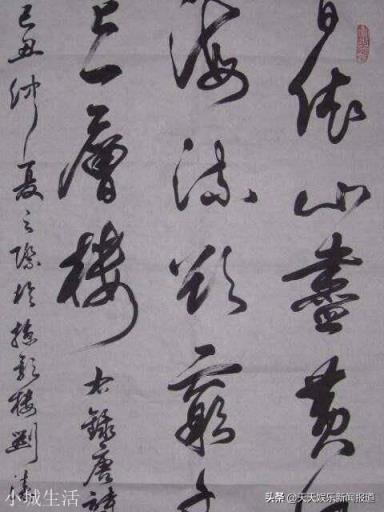 日依山盡黃河
海流欲窮千
上一層樓 右錄唐詩
己丑仲夏之際於樓劉
小城生活
头条 @天天娱乐新闻报道